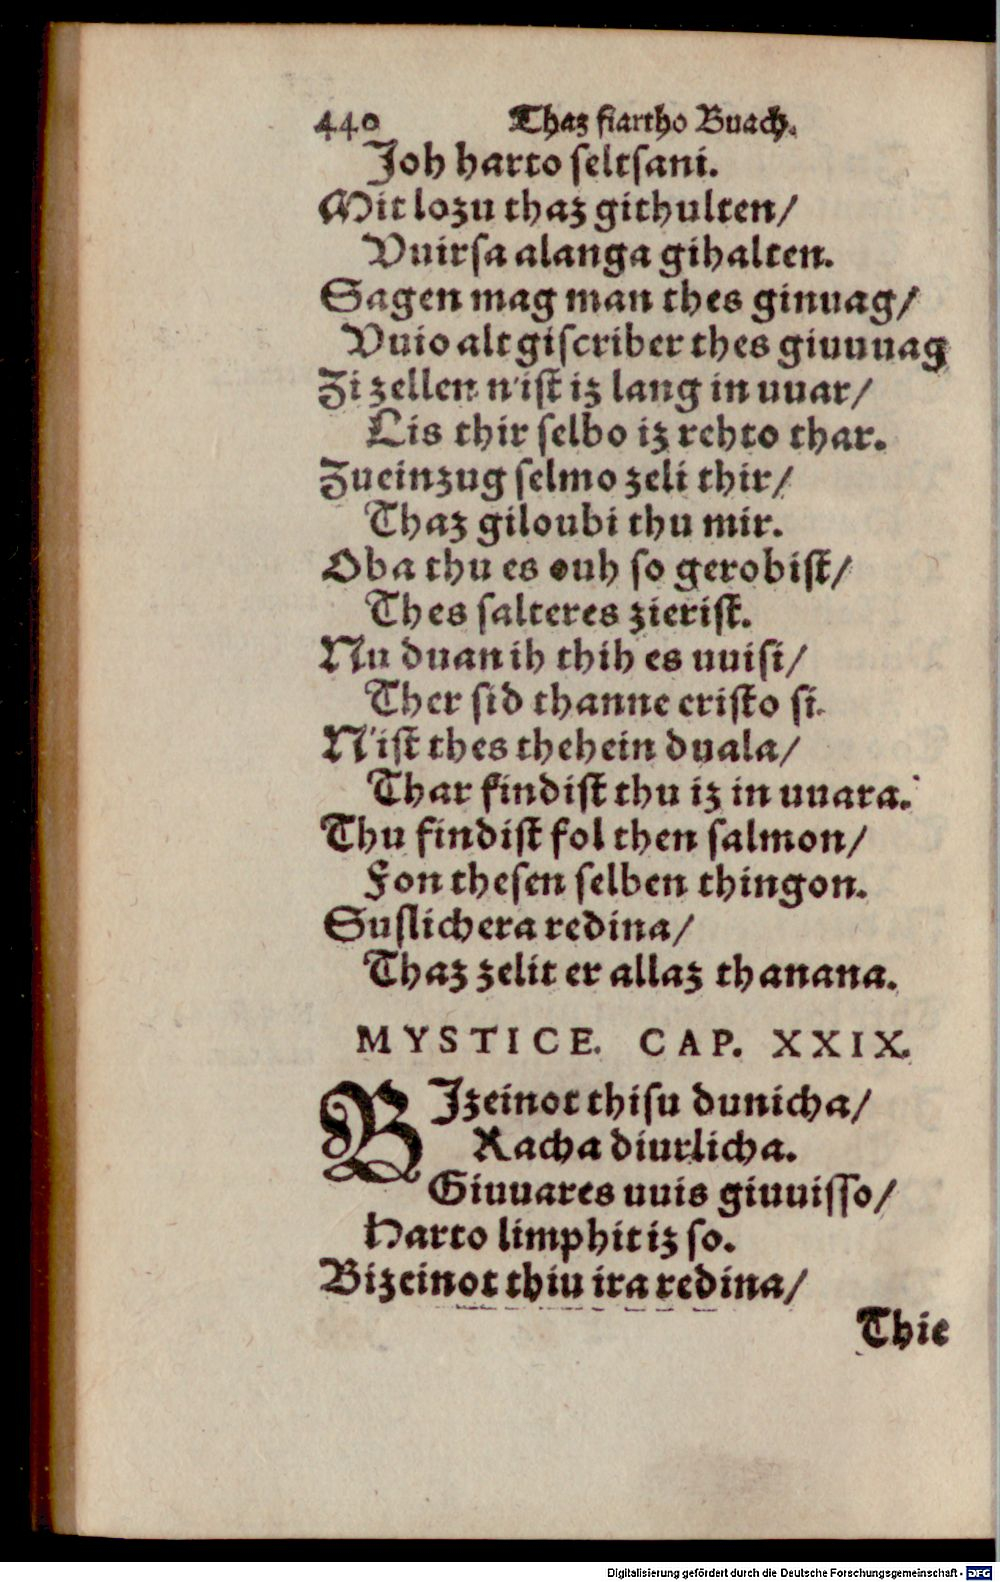 440 Thaz fiartho Buach.
Joh harto seltsani.
Mit lozu thaz githulten/
Vuirsa alanga gihalten.
Sagen mag man thes ginuag/
Vuio alt giscriber thes giuuuag
Zi zellen n'ist iz lang in uuar/
Lis thir selbo iz rehto thar.
Zueinzug selmo zeli thir/
Thaz giloubi thu mir.
Oba thu es ouh so gerobist/
Thes salteres zierist.
Nu duan ih thih es uuisi/
Ther sid thanne eristo si.
N'ist thes thehein duala/
Thar findist thu iz in uuara.
Thu findist fol then salmon/
Fon thesen selben thingon.
Suslichera redina/
Thaz zelit er allaz thanana.
MYSTICE. CAP. XXIX.
BJzeinot thisu dunicha/
Racha diurlicha.
Giuuares uuis giuuisso/
Harto limphit iz so.
Bizeinot thiu ira redina/
Thie
Digitalisierung gefördert durch die Deutsche Forschungsgemeinschaft - DFG